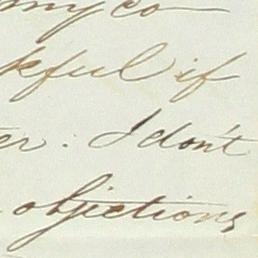 my co
kful if
er. I don't
objections